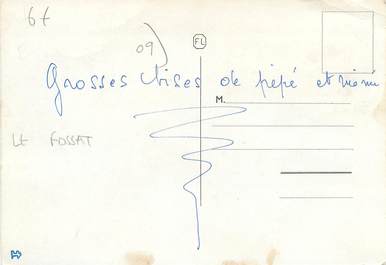 67
09)
FL
Grosses bises de pépé et mémé
M.
LE FOSSAT